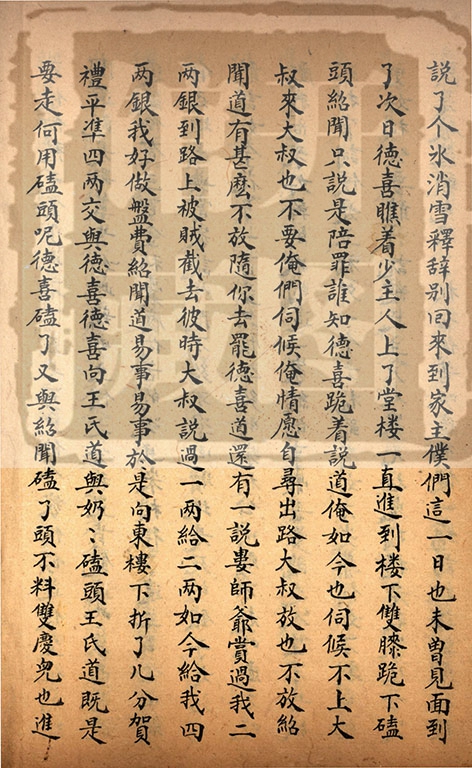 說了个氷消雪釋辞别回來到家主僕們這一日也未曾見面到
了次日德喜瞧着少主人上了堂楼一直進到楼下雙膝跪下磕
頭紹聞只說是陪罪誰知德喜跪着說道俺如今也伺候不上大
叔來大叔也不要俺們伺候俺情愿自尋出路大叔放也不放紹
聞道有甚庅不放隨你去罷德喜道還有一說婁師爺賞過我二
两銀到路上被賊截去彼時大叔說過一两給二两如今給我四
两銀我好做盤費紹聞道易事易事於是向東樓下折了几分賀
禮平準四两交與德喜德喜向王氏道與奶〻磕頭王氏道既是
要走何用磕頭呢德喜磕了又與紹聞磕了頭不料雙慶兒也進